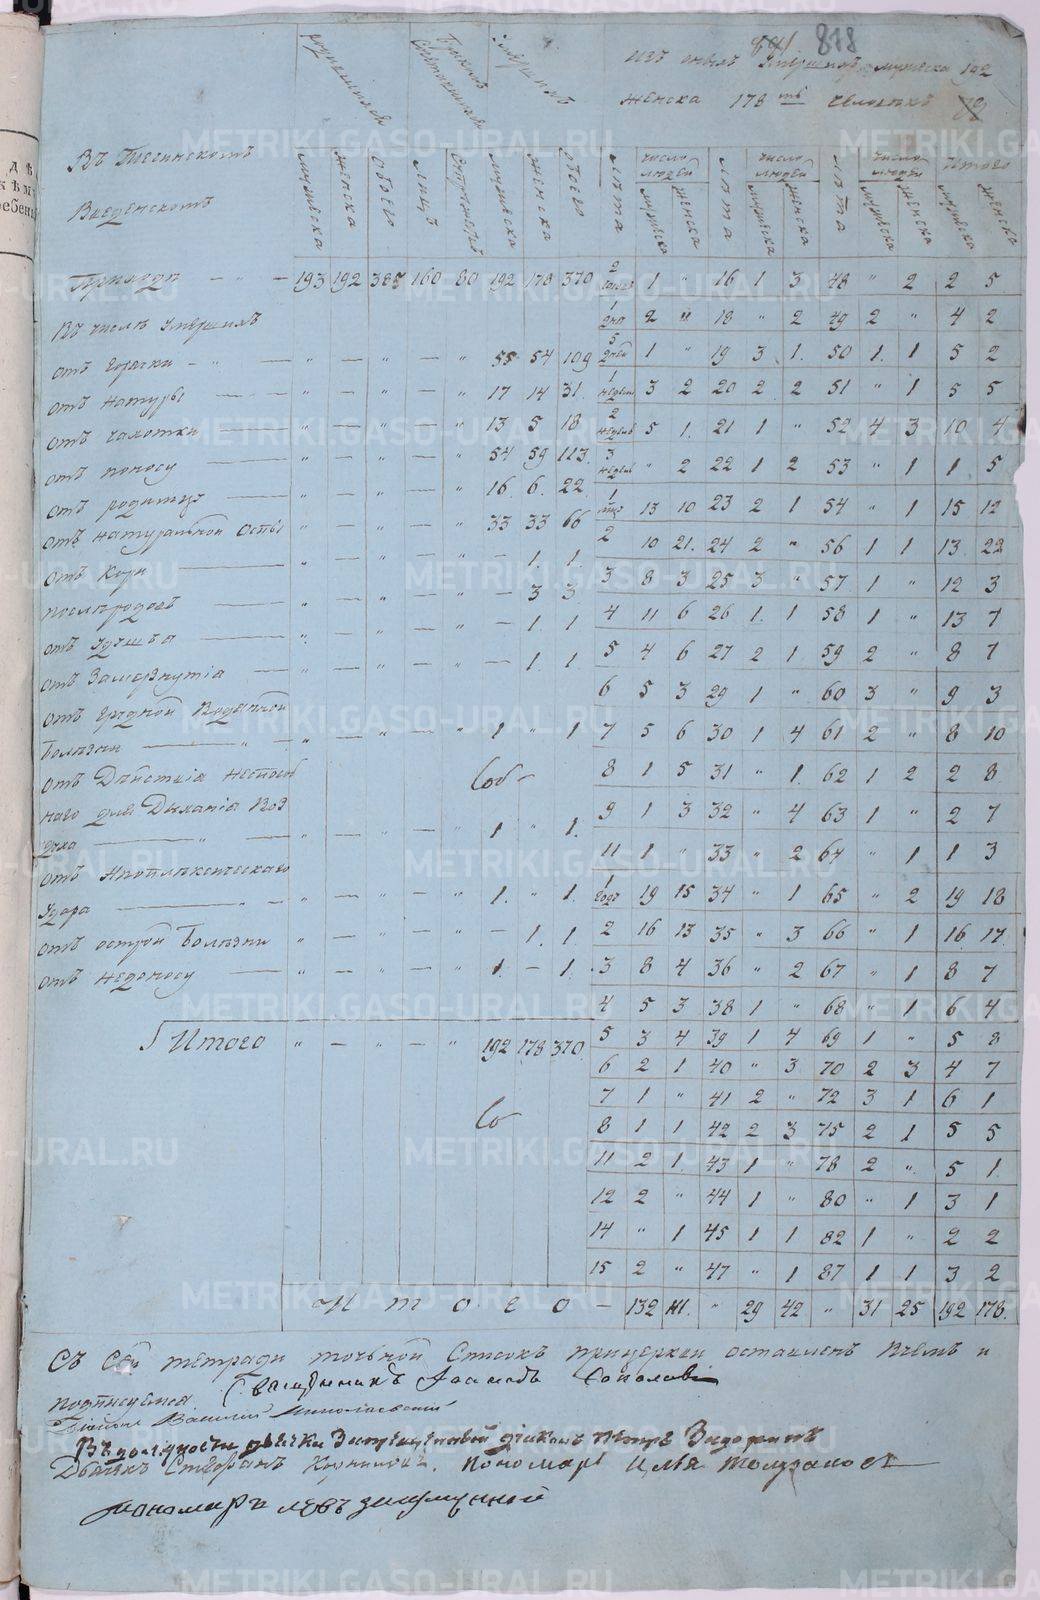 818
изъ оныхъ Умершихъ мужеска 192
женска 178 челов
родившихся
Браковъ
умершихъ
Въ
Введенскомъ
мужеска женска Обоего мужеска женска обоего лѣта число людей мужеска женска лѣта число людей мужеска женска лѣта число людей мужеска женска Итого мужеска женска
193 192 385 160 80 192 178 370 2 1 " 16 1 3 48 " 2 2 5
Въ числѣ Умершихъ
1 2 " 18 " 2 49 2 " 4 2
отъ горячки " — " — " 55 54 109 5 дней 1 " 19 3 1. 50 1. 1 5 2
отъ натуры " — " — " 17 14 31. 1 3 2 20 2 2 51 " 1 5 5
отъ чахотки " — " — " 13 5 18 2 5 1. 21 1 " 52 4 3 10 4
отъ поносу " — " — " 54 59 113. 3 " 2 22 1 2 53 " 1 1 5
отъ родимцъ " — " — " 16. 6. 22. 1 13 10 23 2 1 54 " 1 15 12
отъ натуральной Оспы " — " — " 33 33 66 2 10 21. 24 2 " 56 1 1 13. 22
отъ Кори " — " — " — 1. 1. 3 8 3 25 3 " 57 1 " 12 3
" — " — " — 3 3 4 11 6 26 1. 1 58 1 " 13 7
отъ удушья " — " — " — 1. 1 5 4 6 27 2 1. 59 2 " 8 7
отъ Замерзнутія " — " — " — 1. 1 6 5 3 29 1 " 60 3 " 9 3
отъ грудной Водяной
Болѣзни " — " — " 1 " 1 7 5 6 30 1 4 61 2 " 8 10
отъ Дѣйствія неспособ 8 1 5 31 " 1. 62 1 2 2 8
наго для Дыханія Воз 9 1 3 32 " 4 63 1 " 2 7
духа " — " — " 1 " 1. 11 1 " 33 " 2 64 " 1 1 3
отъ Апоплексическаго
Удара " — " — " 1. " 1. 1 года 19 15 34 " 1 65 " 2 19 18
отъ острой Болѣзни " — " — " — 1. 1. 2 16 13 35 " 3 66 " 1 16. 17.
отъ недоносу " — " — " 1. — 1. 3 8 4 36 " 2 67 " 1 8 7
4 5 3 38 1 " 68 " 1 6 4
Итого " — " — " 192 178 370. 5 3 4 39 1 4 69 1 " 5 8
6 2 1 40 " 3 70 2 3 4 7
7 1 " 41 2 " 72 3 1 6 1
8 1 1 42 2 3 75 2 1 5 5
11 2 1. 43 1 " 78 2 " 5 1.
12 2 " 44 1 " 80 " 1 3 1
14 " 1 45 1 1 82 1 " 2 2
15 2 " 47 " 1 87 1 1 3 2
Итого — 132 111. " 29 42 " 31 25 192 178.
Съ Сей тетради точной Списокъ прицеркви оставленъ Вчемъ и
подписуемся Священникъ Соколовъ
Василий
Въ должности дьячка Запрещенный діаконъ Петръ
Дьячекъ Стефанъ Пономарь Илья
пономарь левъ